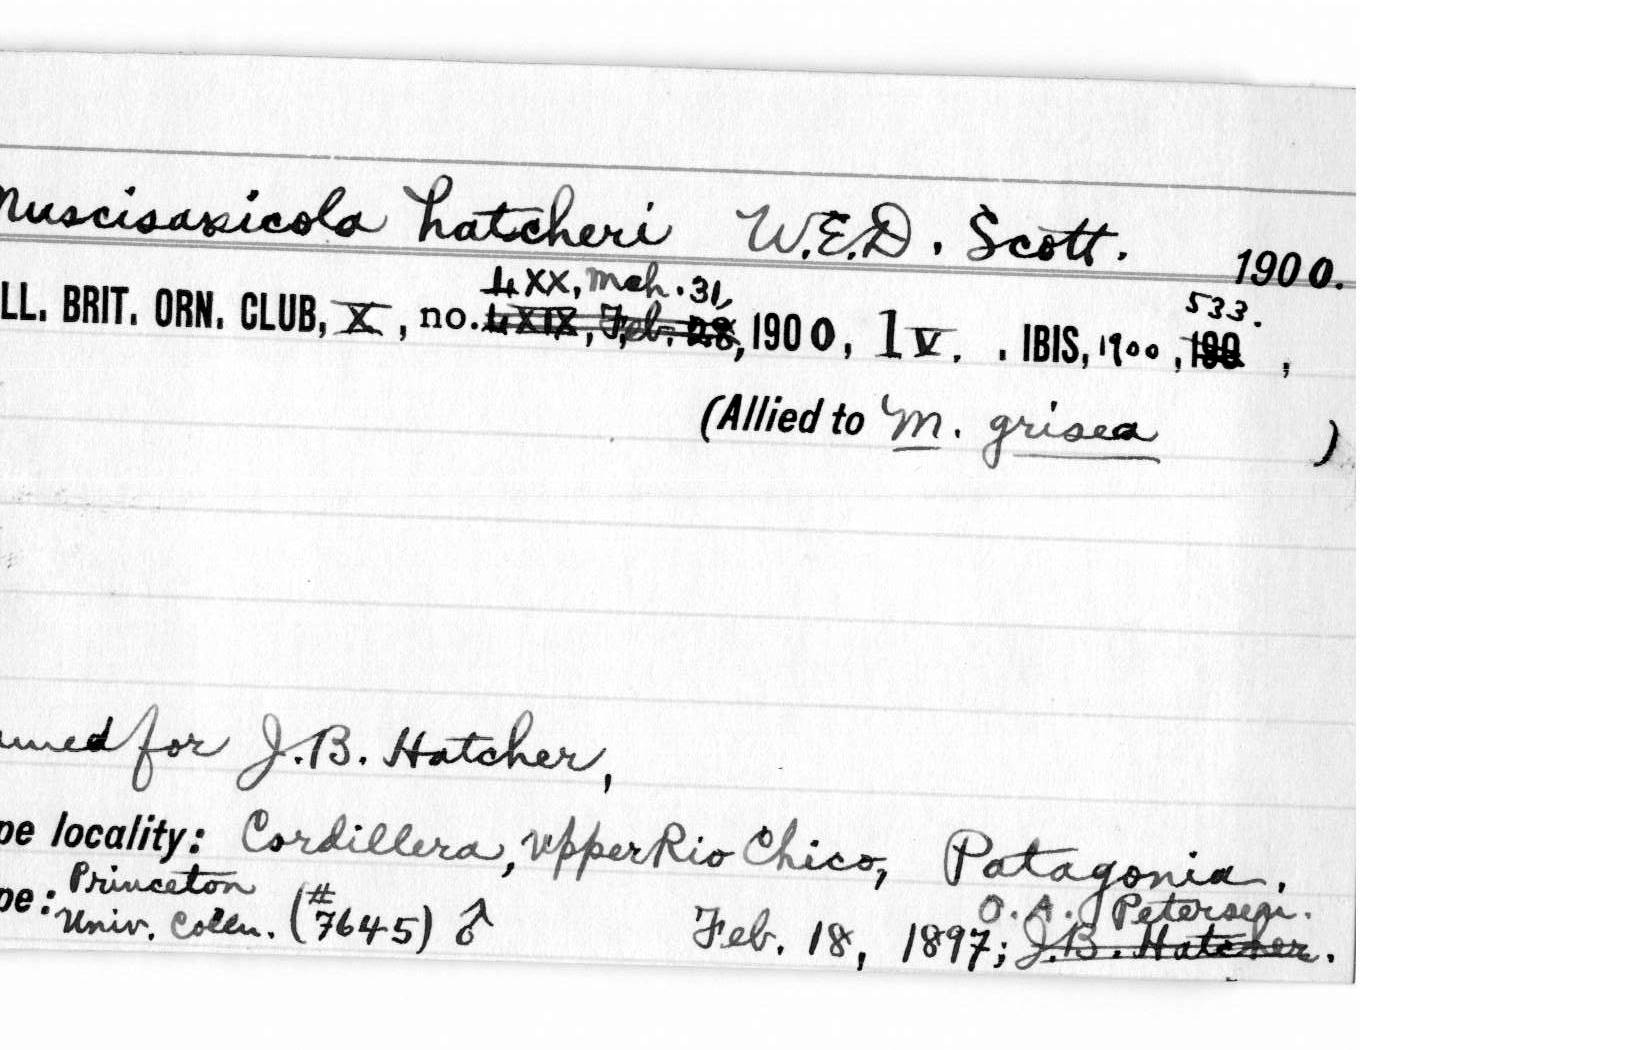 Muscisaxicola hatcheri W.E.D. Scott. 1900.
LXX, Mch. 31, 533.
LL. BRIT. ORN. CLUB, X, no. LXIX, Feb. 28, 1900, lv. . IBIS, 1900, 190 ,
(Allied to M. grisea )
amed for J.B. Hatcher,
pe locality: Cordillera, upper Rio Chico, Patagonia.
Princeton # O. A. Peterson.
pe: Univ. Colln. (7645) ♂ Feb. 18, 1897; J.B. Hatcher.